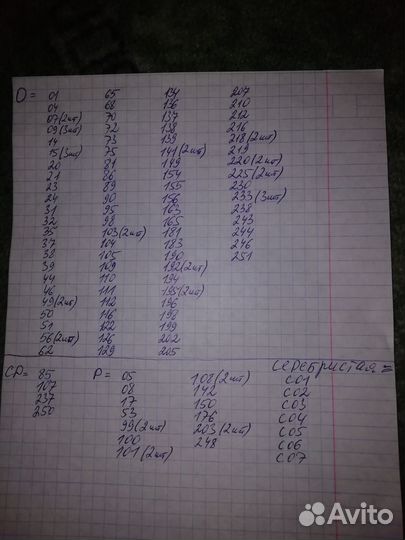 О = 01
04
07(2шт)
09(3шт)
14
15(3шт)
20
21
23
24
31
32
35
37
38
39
44
46
49(2шт)
50
51
56(2шт)
62
65
68
70
72
73
75
81
86
89
90
95
98
103(2шт)
104
105
109
110
111
112
116
122
126
129
134
136
137
138
139
141(2шт)
149
154
155
156
163
165
181
183
190
192(2шт)
194
195(2шт)
196
198
199
202
205
207
210
212
216
218(2шт)
219
220(2шт)
225(2шт)
230
233(3шт)
238
243
244
246
251
СР= 85
107
237
250
Р = 05
08
17
53
99(2шт)
100
101(2шт)
108(2шт)
142
150
176
203(2шт)
248
Серебристая =
С01
С02
С03
С04
С05
С06
С07
Avito